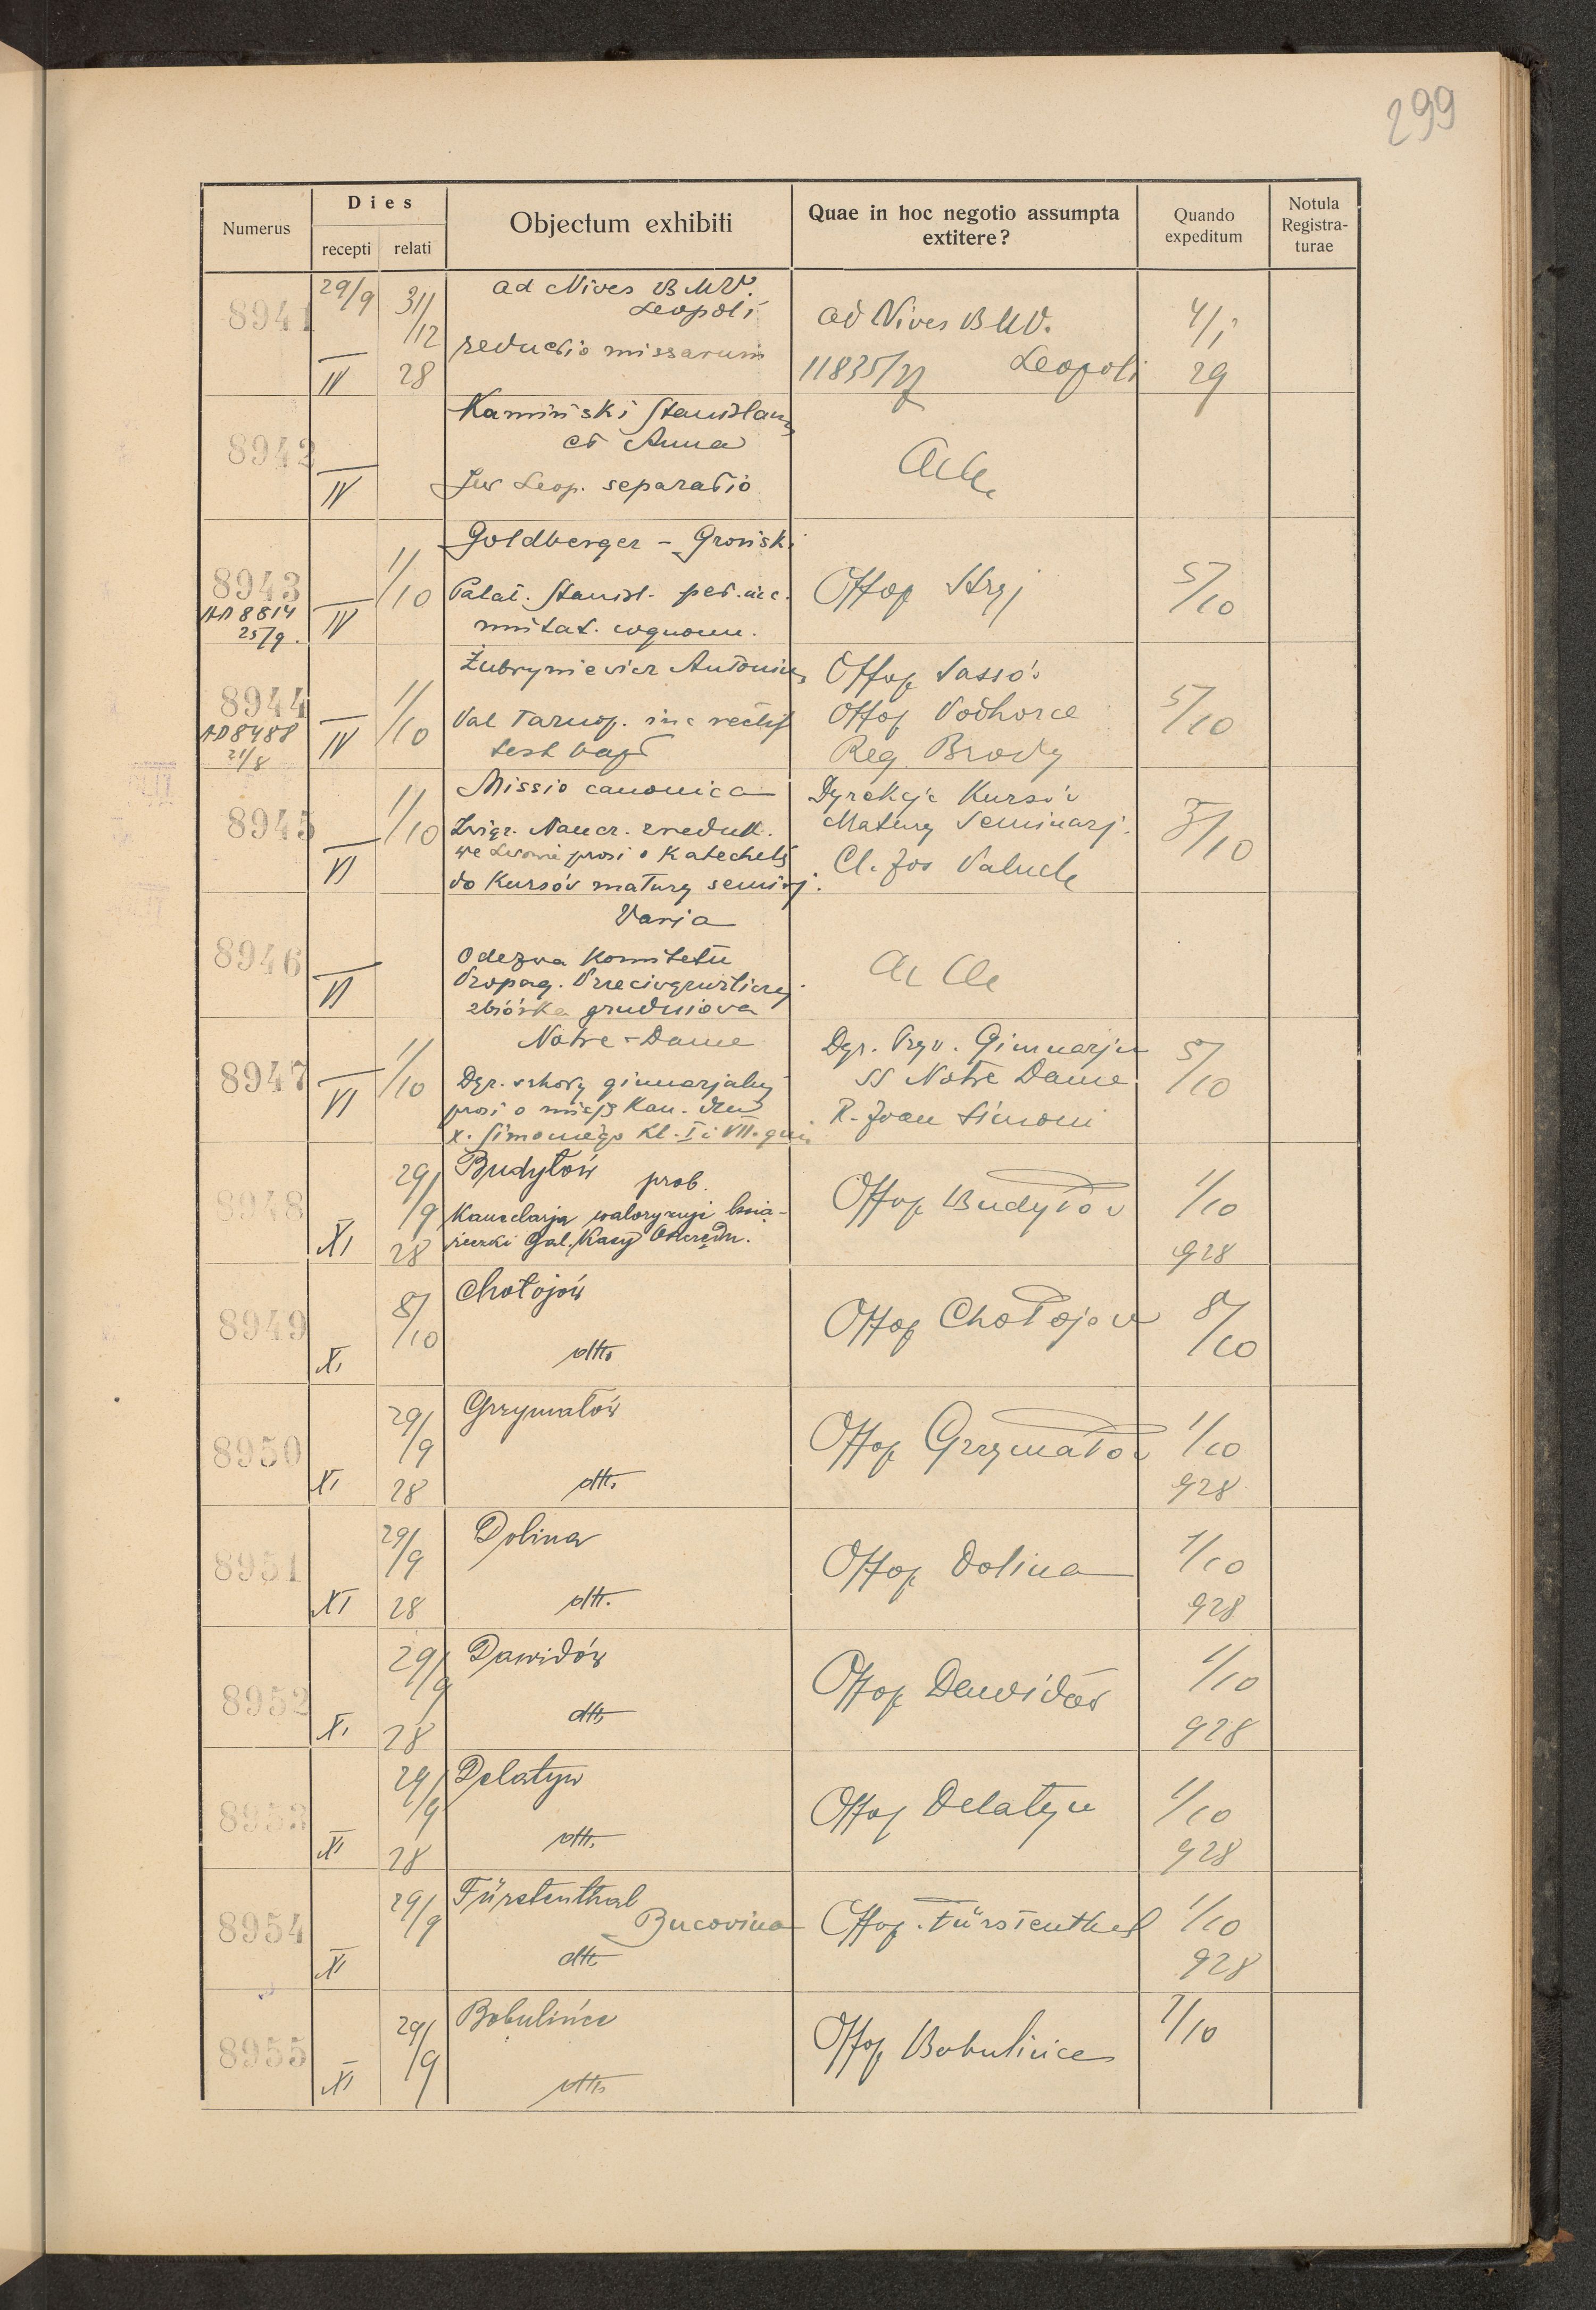 299
Numerus
Dies
recepti relati
Objectum exhibiti
Quae in hoc negotio assumpta
extitere?
Quando
expeditum
Notula
Registra-
turae
8941
29/9
IV
31/12
28
ad Nives B.M.V.
Leopoli
reductio missarum
ad Nives BMV.
11835/27 Leopoli
4/1
29
8942
IV
Kamiński Stanislaus
et Anna
Leop. separatio
Acta
8943
AD 8814
25/9.
IV
1/10
Goldberger - Gronski
Palat. Stanisl. pet.
mutat. cognom.
Offop Stryj
5/10
8944
AD 8488
21/8
IV
1/10
Żubryniewicz Antonius
Pal Tarnop.
test bapt
Offop Sassów
Offop Podhorce
Reg. Brody
5/10
8945
VI
1/10
Missio canonica
Związ. Naucz.
we Lwowie prosi o Katechetę
do Kursów matury seminarj.
Dyrekcja Kursów
Matury Seminarj.
Cl. Jos
5/10
8946
VI
Varia
Odezwa Komitetu
Propag. Przeciwgruźliczej
zbiórka grudniowa
Acta
8947
VI
1/10
Notre-Dame
Dyr. szkoły gimnazjalnej
prosi o misję kan. dla
X. Simoniego Kl. I i VII. gim
Dyr. Pryw. Gimnazju
SS Notre Dame
R. Joan Simoni
5/10
8948
XI
29/9
28
Budyłów prob.
Kancelarja waloryzuje książ-
Gal. Kasy Oszczędn.
Offop Budyłów
1/10
928
8949
XI
8/10
Chołojów
dtto
Offop Chołojów
8/10
8950
XI
29/9
28
Grzymałów
dtto
Offop Grzymałów
1/10
928
8951
XI
29/9
28
Dolina
dtto
Offop Dolina
1/10
928
8952
XI
29/9
28
Dawidów
dtto
Offop Dawidów
1/10
928
8953
XI
29/9
28
Delatyn
dtto
Offop Delatyn
1/10
928
8954
XI
29/9
Fürstenthal
Bucovina
dtto
Offop. Fürstenthal
1/10
928
8955
XI
29/9
Bobulińce
dtto
Offop Bobulińce
1/10